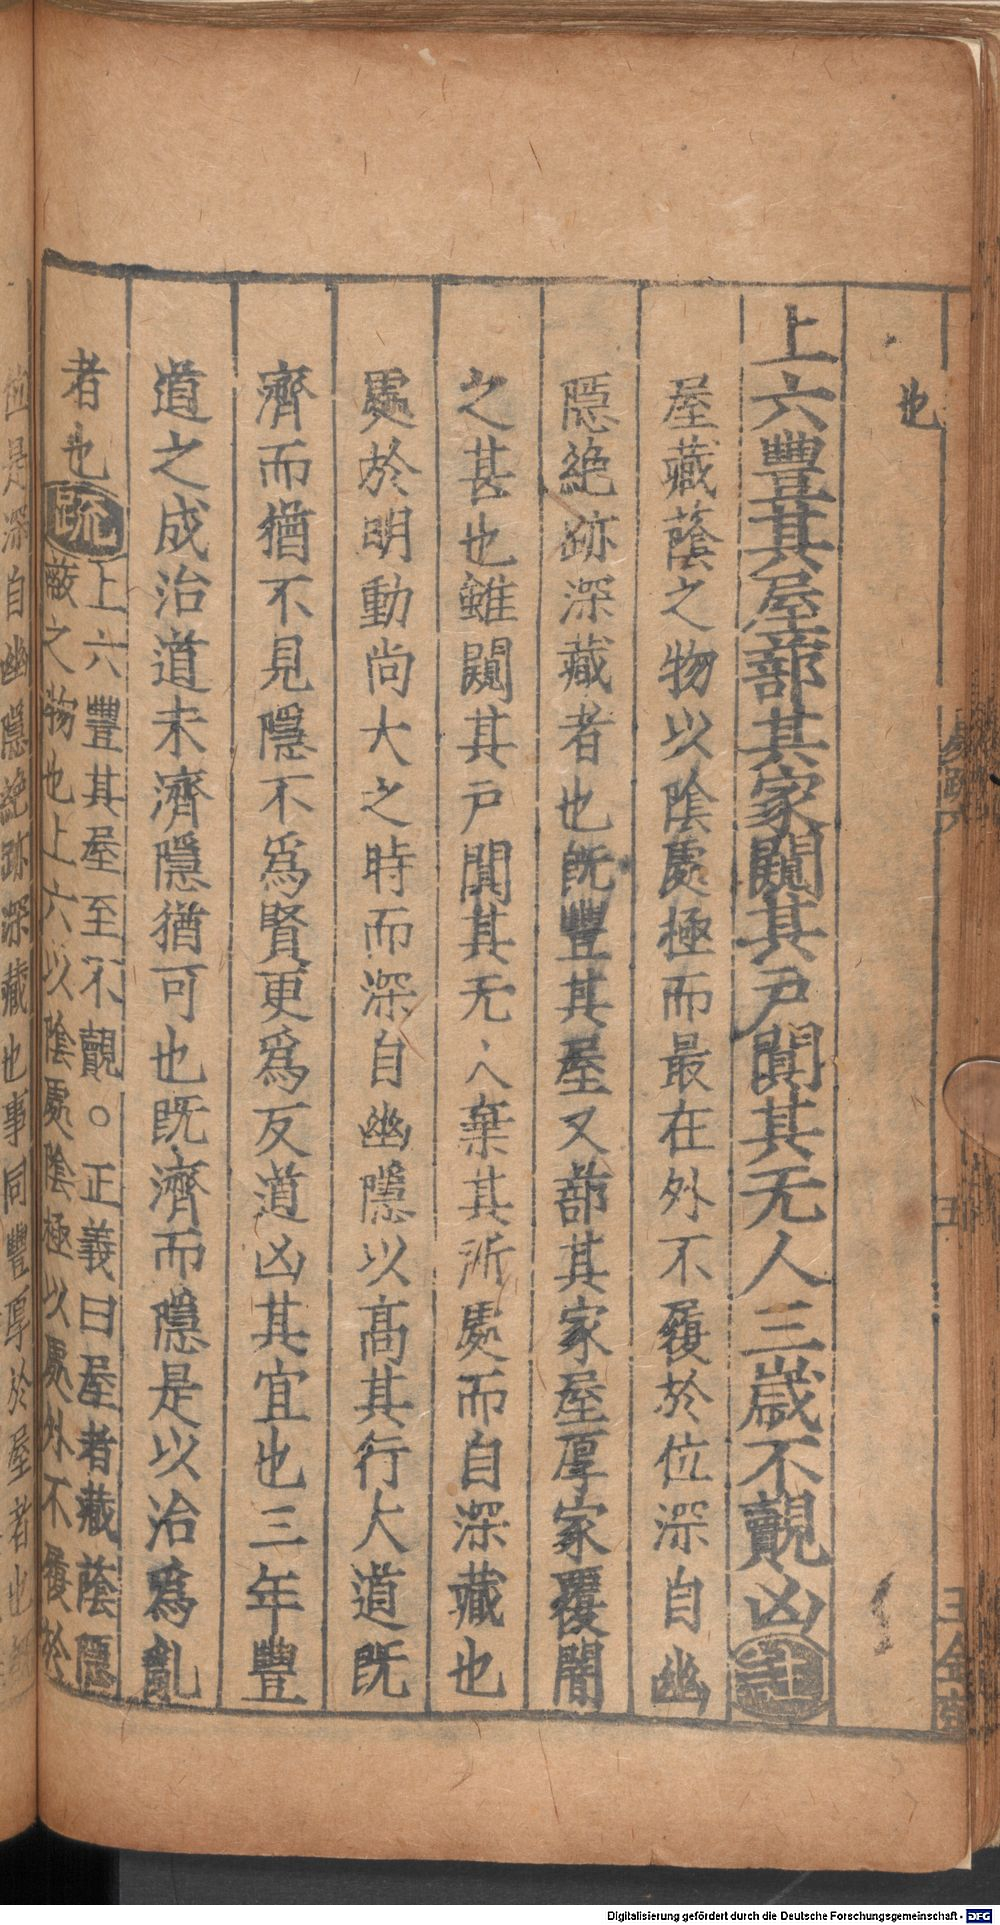 也
上六豐其屋蔀其家闚其戸闃其无人三歲不覿凶註
屋藏蔭之物以陰處極而最在外不履於位深自幽
隱絶跡深藏者也既豐其屋又蔀其家屋厚家覆闇
之甚也雖闚其戸闃其无人棄其所處而自深藏也
處於明動尚大之時而深自幽隱以高其行大道既
濟而猶不見隱不爲賢更爲反道凶其宜也三年豐
道之成治道未濟隱猶可也既濟而隱是以治爲亂
者也疏
上六豐其屋至不覿○正義曰屋者藏蔭隱
蔽之物也上六以陰處陰極以處外不履於
位是深自幽隱絶跡深藏也事同豐厚於屋者也
易疏六
五
王金
Digitalisierung gefördert durch die Deutsche Forschungsgemeinschaft - DFG